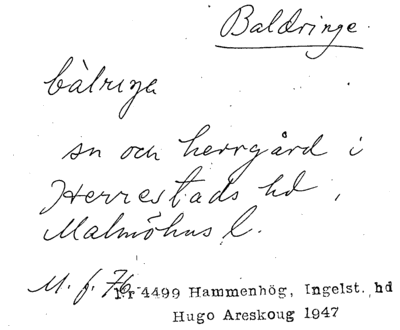 Baldringe.
bàlriŋa
sn och herrgård i
Herrestads hd,
Malmöhus l.
M. f. 76.
Nr 4499 Hammenhög, Ingelst. hd
Hugo Areskoug 1947